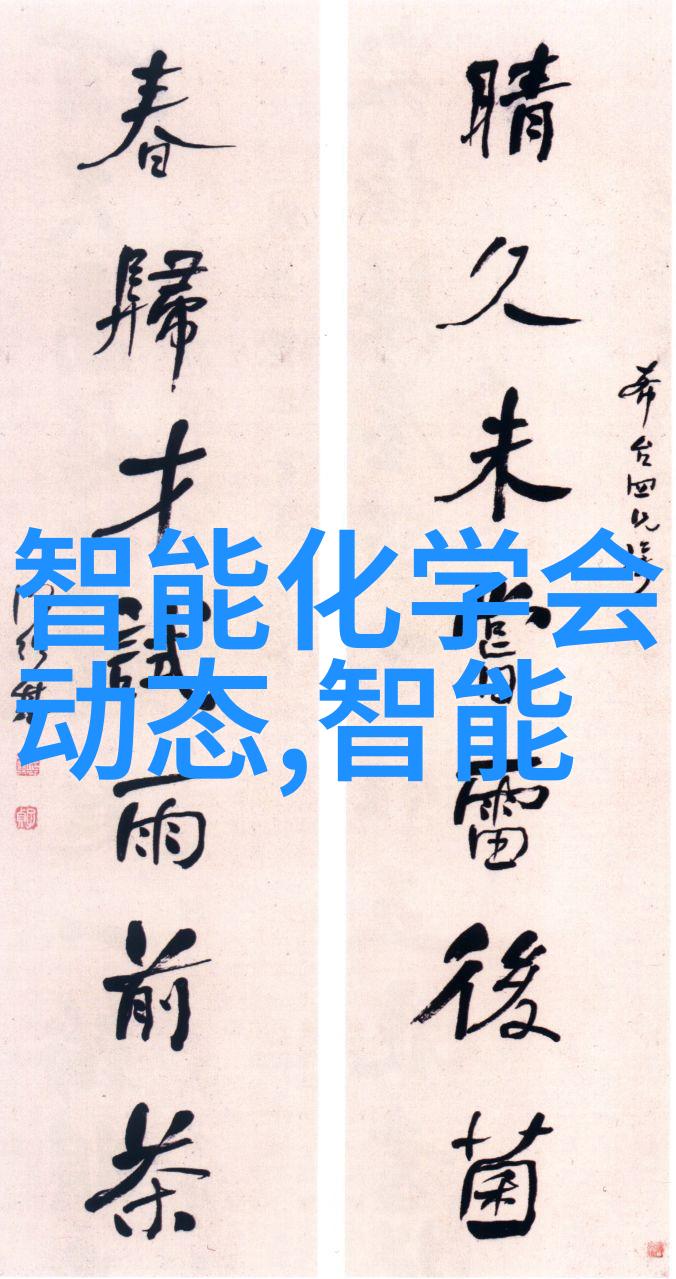 晴久未嘗雷後菌
春歸才試雨前茶
智能化学会
动态,智能